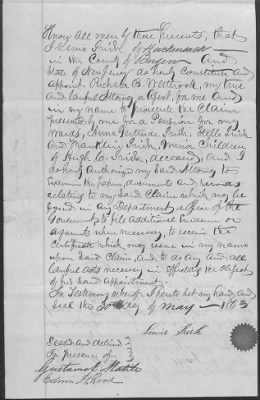 Know all men by these Presents, that
I Lewis Frick of Hackensack
in the County of Bergen and
State of New Jersey do hereby Constitute and
appoint Richard B. Westbrook, my true
and Lawful Attorney, or Agent, for me and
in my name to prosecute the Claim
presented by me for a Pension for my
wards, Anna Gertrude Frick, Stella Frick
and Franklin Frick, Minor Children
of Hugh Frick, deceased, and I
do hereby Authorize my said Attorney to
Examine the papers, documents and records
relating to my said Claim which may be
found in any Department or Office of the
Government, to file additional Evidence or
arguments when necessary, to receive the
Certificate which may issue in my name
upon said Claim, and to do any and all
Lawful acts necessary in Effecting the Object
of his said Appointment.
In Testimony whereof I hereto set my hand, and
seal this 30 day of May 1863
Lewis Frick
Sealed and delivered
in presence of
Gustavus
Edwin